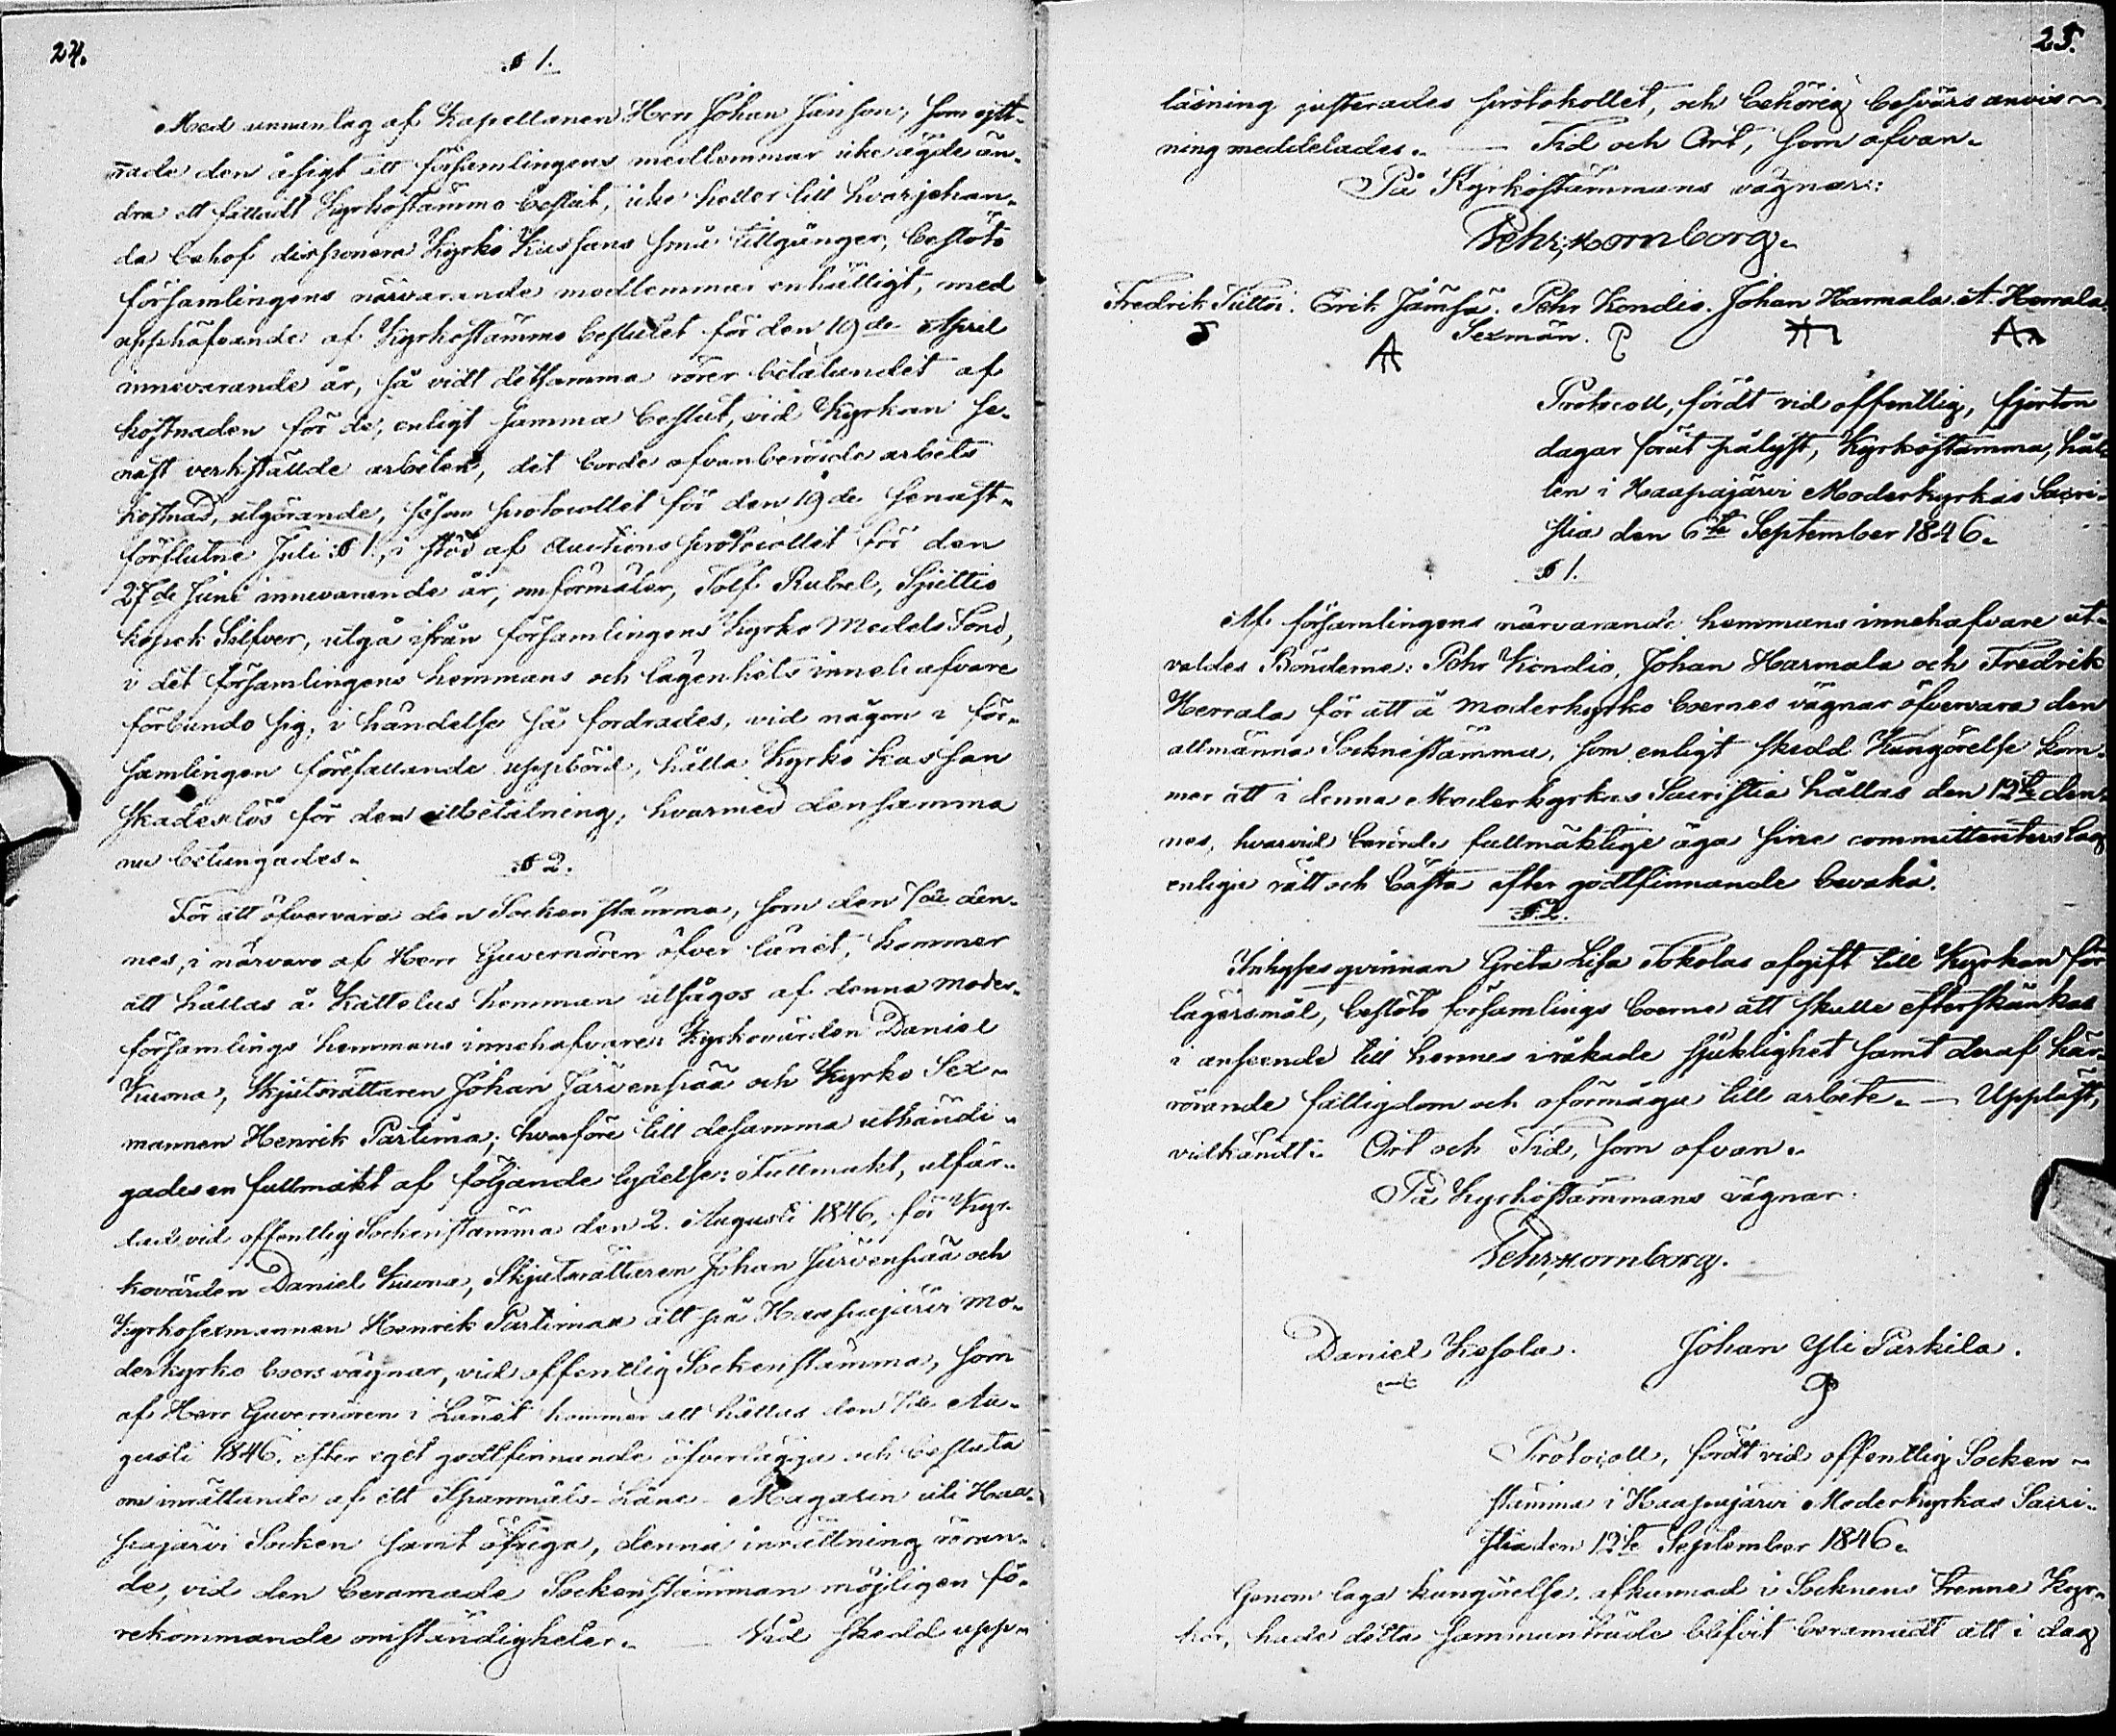 24.
§ 1.
Med annanlag af Kapellanen Herr Johan Janson, som ytt-
rade den åsigt att församlingens medlemmar icke ägde än-
dra ett fattadt Kyrkostämmo beslut, icke heller till hvarjehan-
da behof disponera Kyrko Kassans små tillgånger, beslöto
församlingens närvarande medlemmar enhälligt, med
upphäfvande af Kyrkostämmo beslutet för den 19de April
innevarande år, så vidt detsamma rörer betalandet af
kostnaden för de, enligt samma beslut, vid Kyrkan se-
nast verkställde arbeten, det borde ofvanberörde arbets
kostnad, utgörande, såsom protocollet för den 19de senast-
förflutne Juli § 1, i stöd af Auctions protocollet för den
27de Juni innevarande år, omförmäler, Tolf Rubel, Sjuttio
kopek Silfver, utgå ifrån församlingens Kyrko Medels Fond,
i det församlingens hemmans och lägenhets innehafvare
förbundo sig, i händelse så fordrades, vid någon i för-
samlingen förefallande uppbörd, hålla Kyrko Kassan
skadeslös för den utbetalning, hvarmed densamma
nu betungades.
§ 2.
För att öfvervara den Sockenstämma, som den 7de den-
nes, i närvaro af Herr Guvernören öfver länet, kommer
att hållas å Kattelus hemman utsågos af denna moder-
församlings hemmans innehafvare Kyrkovärden Daniel
Kuona, Skjutsrättaren Johan Järvenpää och Kyrko Sex-
mannen Henrik Partima; hvarföre till desamma uthändi-
gades en fullmakt af följande lydelse: Fullmakt, utfär-
dad vid offentlig Sockenstämma den 2. Augusti 1846, för Kyr-
kovärden Daniel Kuona, Skjutsrättaren Johan Järvenpää och
Kyrkosexmannen Henrik Partimaa att på Haapajärvi mo-
derkyrko boers vägnar, vid offentlig Sockenstämma, som
af Herr Guvernören i Länet kommer att hållas den 7de Au-
gusti 1846. efter eget godtfinnande öfverlägga och besluta
om inrättande af ett Spannmåls-Låne-Magasin uti Haa-
pajärvi Socken samt öfriga, denna inrättning röran-
de, vid den beramade Sockenstämman möjligen fö-
rekommande omständigheter. — Vid skedd upp-
25.
läsning justerades protokollet, och behörig besvärs anvis-
ning meddelades. — Tid och Ort, som ofvan.
På Kyrkostämmans vägnar:
Pehr Kornborg.
Fredrik Tuttu. Erik Jämsä. Pehr Kondio. Johan Harmala. A. Herrala.
Sexmän.
Protocoll, fördt vid offentlig, fjorton
dagar förut pålyst, Kyrkostämma, hål-
len i Haapajärvi Moderkyrkas Sacri-
stia den 6te September 1846.
§ 1.
Af församlingens närvarande hemmans innehafvare ut-
valdes Bönderne: Pehr Kondio, Johan Harmala och Fredrik
Herrala för att å moderkyrko boernes vägnar öfvervara den
allmänna Socknestämma, som enligt skedd Kungörelse kom-
mer att i denna Moderkyrkas Sacristia hållas den 12te den-
nes, hvarvid berörde fullmäktige äga sine committenters lag
enliga rätt och bästa efter godtfinnande bevaka.
§ 2.
Inhyses qvinnan Greta Lisa Tokolas afgift till Kyrkan för
lägersmål, beslöto församlings boerne att skulle efterskänkas
i anseende till hennes iråkade sjuklighet samt deraf här-
rörande fattigdom och oförmåga till arbete. — Uppläst,
vidkändt. Ort och Tid, som ofvan.
På Kyrkostämmans vägnar:
Pehr Kornborg.
Daniel Kesola. Johan Yli Parkila.
Protocoll, fördt vid offentlig Socken-
stämma i Haapajärvi Moderkyrkas Sacri-
stia den 12te September 1846.
Genom laga kungörelse, afkunnad i Socknens trenne Kyr-
kor, hade detta sammanträde blifvit beramadt att i dag